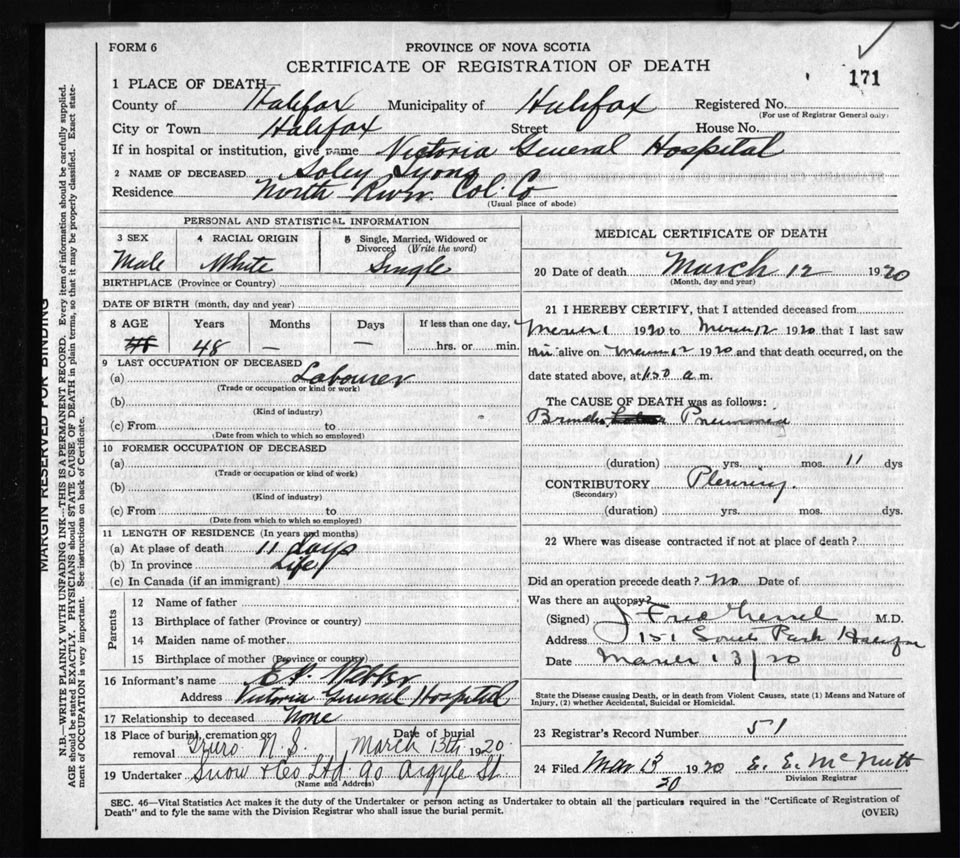 FORM 6
PROVINCE OF NOVA SCOTIA
CERTIFICATE OF REGISTRATION OF DEATH
171
1 PLACE OF DEATH
County of Halifax Municipality of Halifax Registered No.
(For use of Registrar General only)
City or Town Halifax Street House No.
If in hospital or institution, give name Victoria General Hospital
2 NAME OF DECEASED Soley Lyons
Residence North River Col. Co
(Usual place of abode)
PERSONAL AND STATISTICAL INFORMATION
3 SEX Male
4 RACIAL ORIGIN White
5 Single, Married, Widowed or Divorced (Write the word) Single
BIRTHPLACE (Province or Country)
DATE OF BIRTH (month, day and year)
8 AGE Years Months Days If less than one day,
48 — — hrs. or min.
9 LAST OCCUPATION OF DECEASED
(a) Labourer
(Trade or occupation or kind of work)
(b)
(Kind of industry)
(c) From to
(Date from which to which so employed)
10 FORMER OCCUPATION OF DECEASED
(a)
(Trade or occupation or kind of work)
(b)
(Kind of industry)
(c) From to
(Date from which to which so employed)
11 LENGTH OF RESIDENCE (In years and months)
(a) At place of death 11 days
(b) In province Life
(c) In Canada (if an immigrant)
Parents
12 Name of father
13 Birthplace of father (Province or country)
14 Maiden name of mother
15 Birthplace of mother (Province or country)
16 Informant's name
Address Victoria General Hospital
17 Relationship to deceased None
18 Place of burial, cremation or removal Truro N.S. Date of burial March 13th 1920
19 Undertaker Snow & Co Ltd 90 Argyle St.
(Name and Address)
MEDICAL CERTIFICATE OF DEATH
20 Date of death March 12 1920
(Month, day and year)
21 I HEREBY CERTIFY, that I attended deceased from
March 1 1920 to March 12 1920 that I last saw
him alive on March 12 1920 and that death occurred, on the
date stated above, at 1.50 a.m.
The CAUSE OF DEATH was as follows:
Pneumonia
(duration) yrs. mos. 11 dys
CONTRIBUTORY Pleurisy.
(Secondary)
(duration) yrs. mos. dys.
22 Where was disease contracted if not at place of death?
Did an operation precede death? No Date of
Was there an autopsy?
(Signed) M.D.
Address 151 South Park Halifax
Date March 13/20
State the Disease causing Death, or in death from Violent Causes, state (1) Means and Nature of
Injury, (2) whether Accidental, Suicidal or Homicidal.
23 Registrar's Record Number 51
24 Filed Mar 13 1920 E. E. McNutt
20 Division Registrar
SEC. 46—Vital Statistics Act makes it the duty of the Undertaker or person acting as Undertaker to obtain all the particulars required in the "Certificate of Registration of
Death" and to fyle the same with the Division Registrar who shall issue the burial permit.
(OVER)
MARGIN RESERVED FOR BINDING
N.B.—WRITE PLAINLY WITH UNFADING INK—THIS IS A PERMANENT RECORD. Every item of information should be carefully supplied.
AGE should be stated EXACTLY. PHYSICIANS should STATE CAUSE OF DEATH in plain terms, so that it may be properly classified. Exact state-
ment of OCCUPATION is very important. See instructions on back of Certificate.